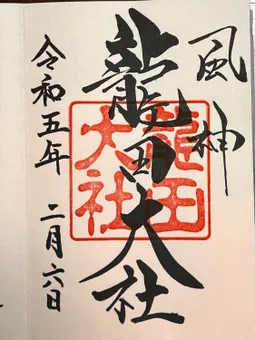 風神
龍田大社
令和五年 二月六日
龍田
大社